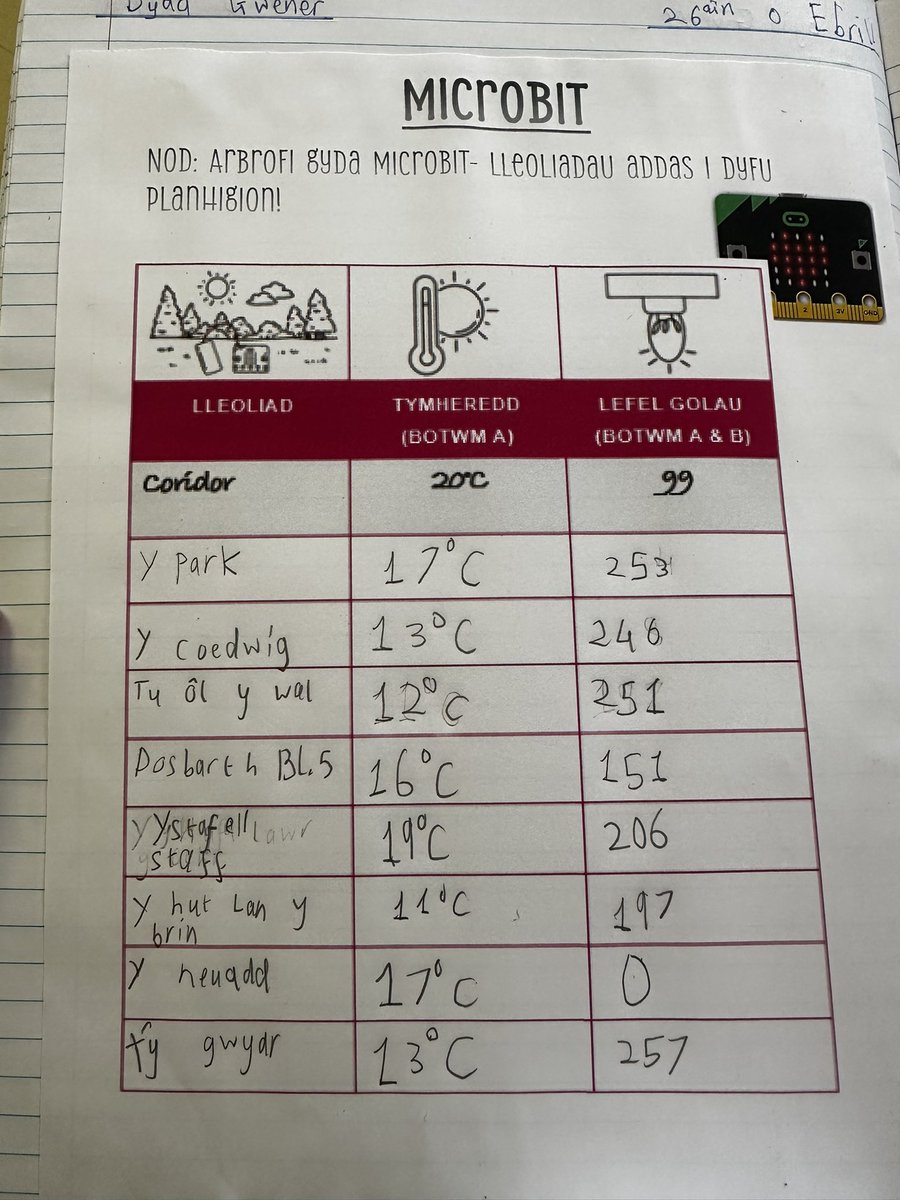 Dydd Gwener
26ain o Ebrill
MICROBIT
NOD: ARBROFI GYDA MICROBIT- LLEOLIADAU ADDAS I DYFU
PLANHIGION!
2 3V GND
LLEOLIAD TYMHEREDD LEFEL GOLAU
(BOTWM A) (BOTWM A & B)
Coridor 20°C 99
Y Park 17°C 253
Y coedwig 13°C 248
Tu ôl y wal 12°C 251
Dosbarth BL.5 16°C 151
Y Ystafell 19°C 206
staff
Y hut Lan y 11°C 197
brin
Y neuadd 17°C 0
tŷ gwydr 13°C 257